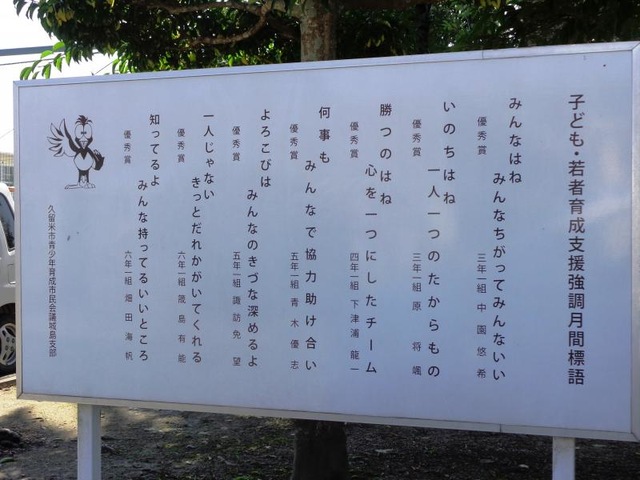 子ども・若者育成支援強調月間標語
みんなはね みんなちがってみんないい
優秀賞 三年一組 中園悠希
いのちはね 一人一つのたからもの
優秀賞 三年一組 原 将颯
勝つのはね 心を一つにしたチーム
優秀賞 四年一組 下津浦 龍一
何事も みんなで協力助け合い
優秀賞 五年一組 青木優志
よろこびは みんなのきづな深めるよ
優秀賞 五年一組 諏訪免 望
一人じゃない きっとだれかがいてくれる
優秀賞 六年一組 島有能
知ってるよ みんな持ってるいいところ
優秀賞 六年一組 畑田海帆
久留米市青少年育成市民会議城島支部